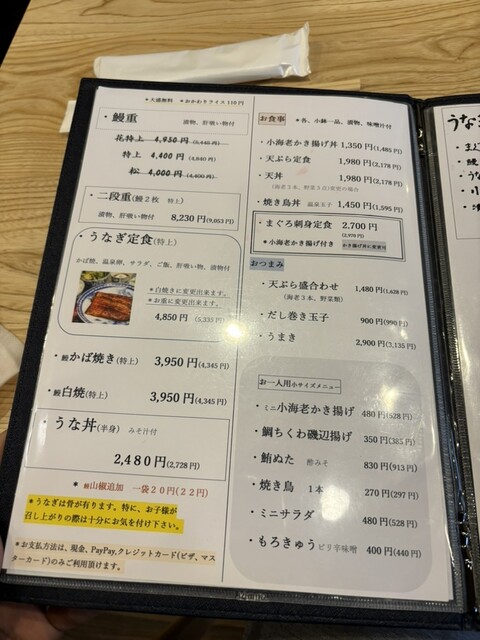 *大盛無料 *おかわりライス110円
・鰻重
漬物、肝吸い物付
花特上 4,950円(5,445円)
特上 4,400円(4,840円)
松 4,000円(4,400円)
・二段重(鰻2枚 特上)
漬物、肝吸い物付 8,230円(9,053円)
・うなぎ定食(特上)
かば焼、温泉卵、サラダ、ご飯、肝吸い物、漬物付
*白焼きに変更出来ます。
*お重に変更出来ます。
4,850円(5,335円)
・鰻かば焼き(特上) 3,950円(4,345円)
・鰻白焼(特上) 3,950円(4,345円)
・うな丼(半身) みそ汁付
2,480円(2,728円)
*鰻山椒追加 一袋20円(22円)
*うなぎは骨が有ります。特に、お子様が
召し上がりの際は十分にお気を付け下さい。
*お支払方法は、現金、PayPay,クレジットカード(ビザ、マス
ターカード)のみご利用頂けます。
お食事 *各、小鉢一品、漬物、味噌汁付
・小海老かき揚げ丼 1,350円(1,485円)
・天ぷら定食 1,980円(2,178円)
・天丼 1,980円(2,178円)
(海老3本、野菜3点)変更の場合
・焼き鳥丼 温泉玉子 1,450円(1,595円)
・まぐろ刺身定食 2,700円
(2,970円)
*小海老かき揚げ付き かき揚げ丼に変更可
おつまみ
・天ぷら盛合わせ 1,480円(1,628円)
(海老3本、野菜類)
・だし巻き玉子 900円(990円)
・うまき 2,900円(3,135円)
お一人用小サイズメニュー
・ミニ小海老かき揚げ 480円(528円)
・鯛ちくわ磯辺揚げ 350円(385円)
・鮪ぬた 酢みそ 830円(913円)
・焼き鳥 1本 270円(297円)
・ミニサラダ 480円(528円)
・もろきゅうピリ辛味噌 400円(440円)
うな